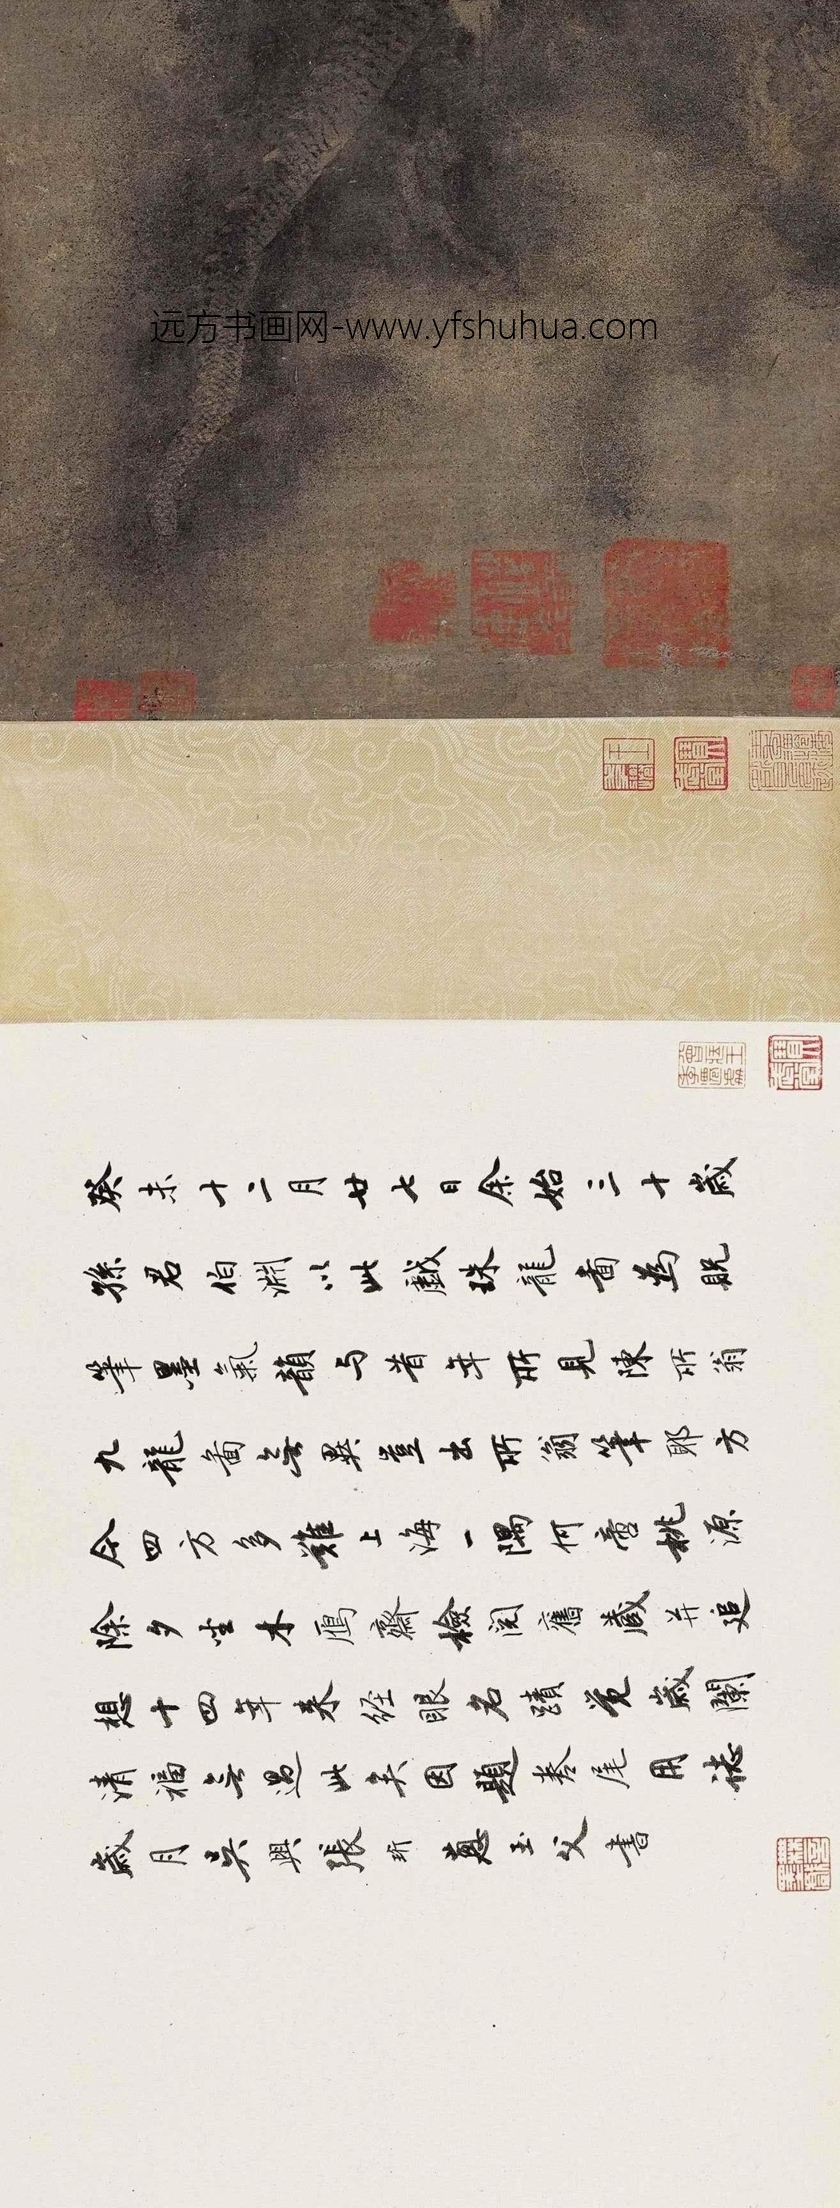 远方书画网-www.yfshuhua.com
癸未十二月廿七日余始三十歲
孫君伯淵以此戲珠龍啚為貺
筆墨氣韻与昔年所見陳所翁
九龍啚無異豈出所翁筆耶方
今四方多難上海一隅何啻桃源
除夕坐木鴈齋檢閱舊藏并追
想十四年来經眼名蹟覚歲闌
清福無過此矣因題卷尾用誌
歲月吳興張珩蔥玉父書